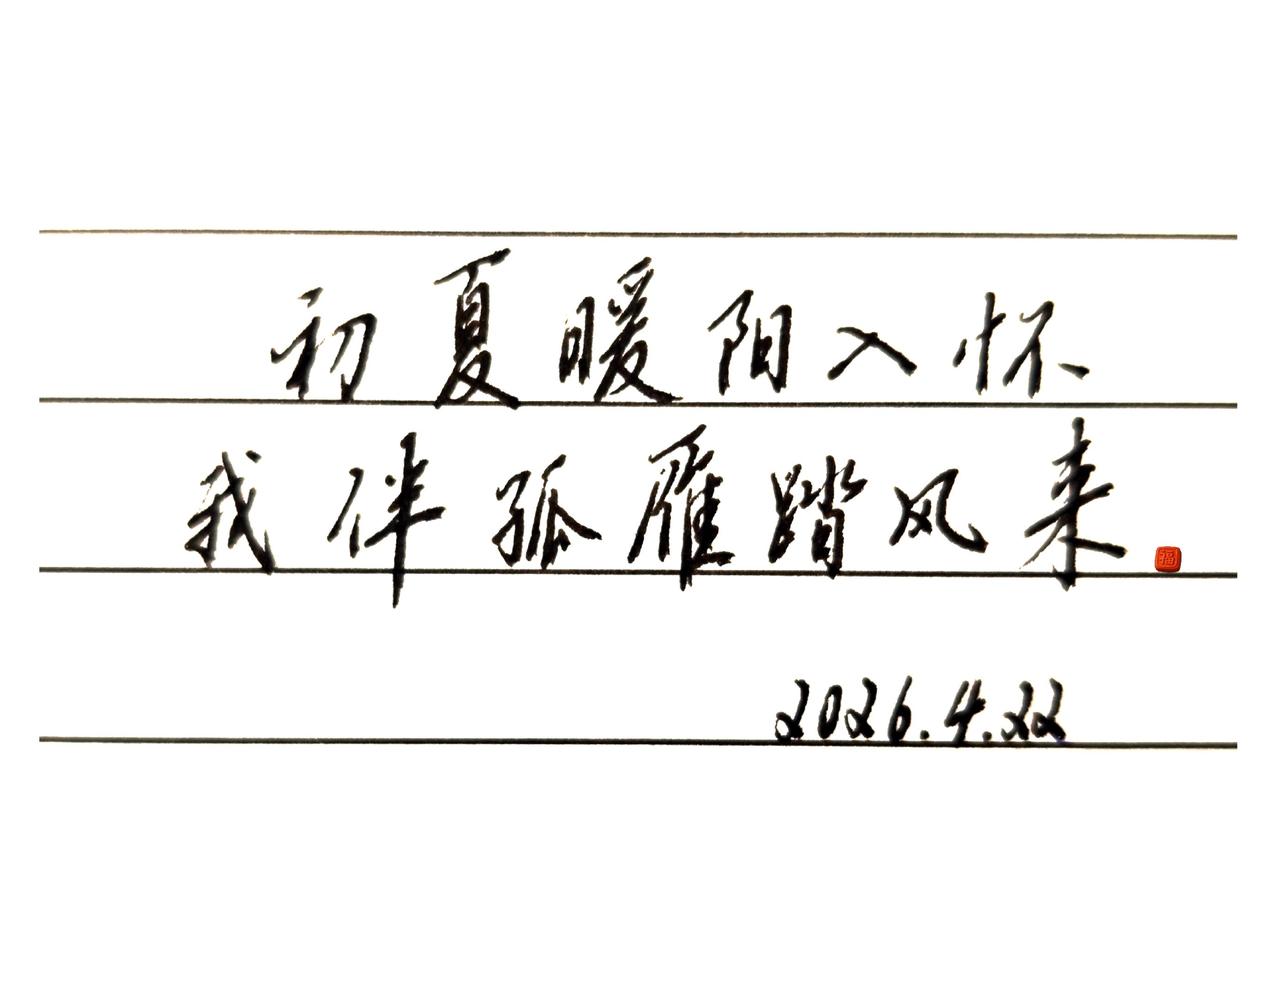 初夏暖阳入怀
我伴孤雁踏风来
福
2026.4.22